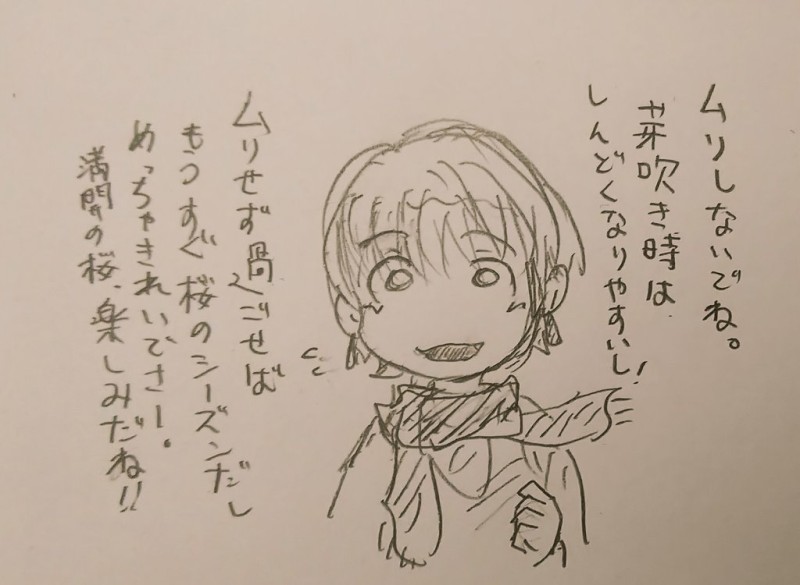 ムリしないでね。
芽吹き時は
しんどくなりやすいし!
ムリせず過ごせば
もうすぐ桜のシーズンだし
めっちゃきれいでさー。
満開の桜、楽しみだね!!